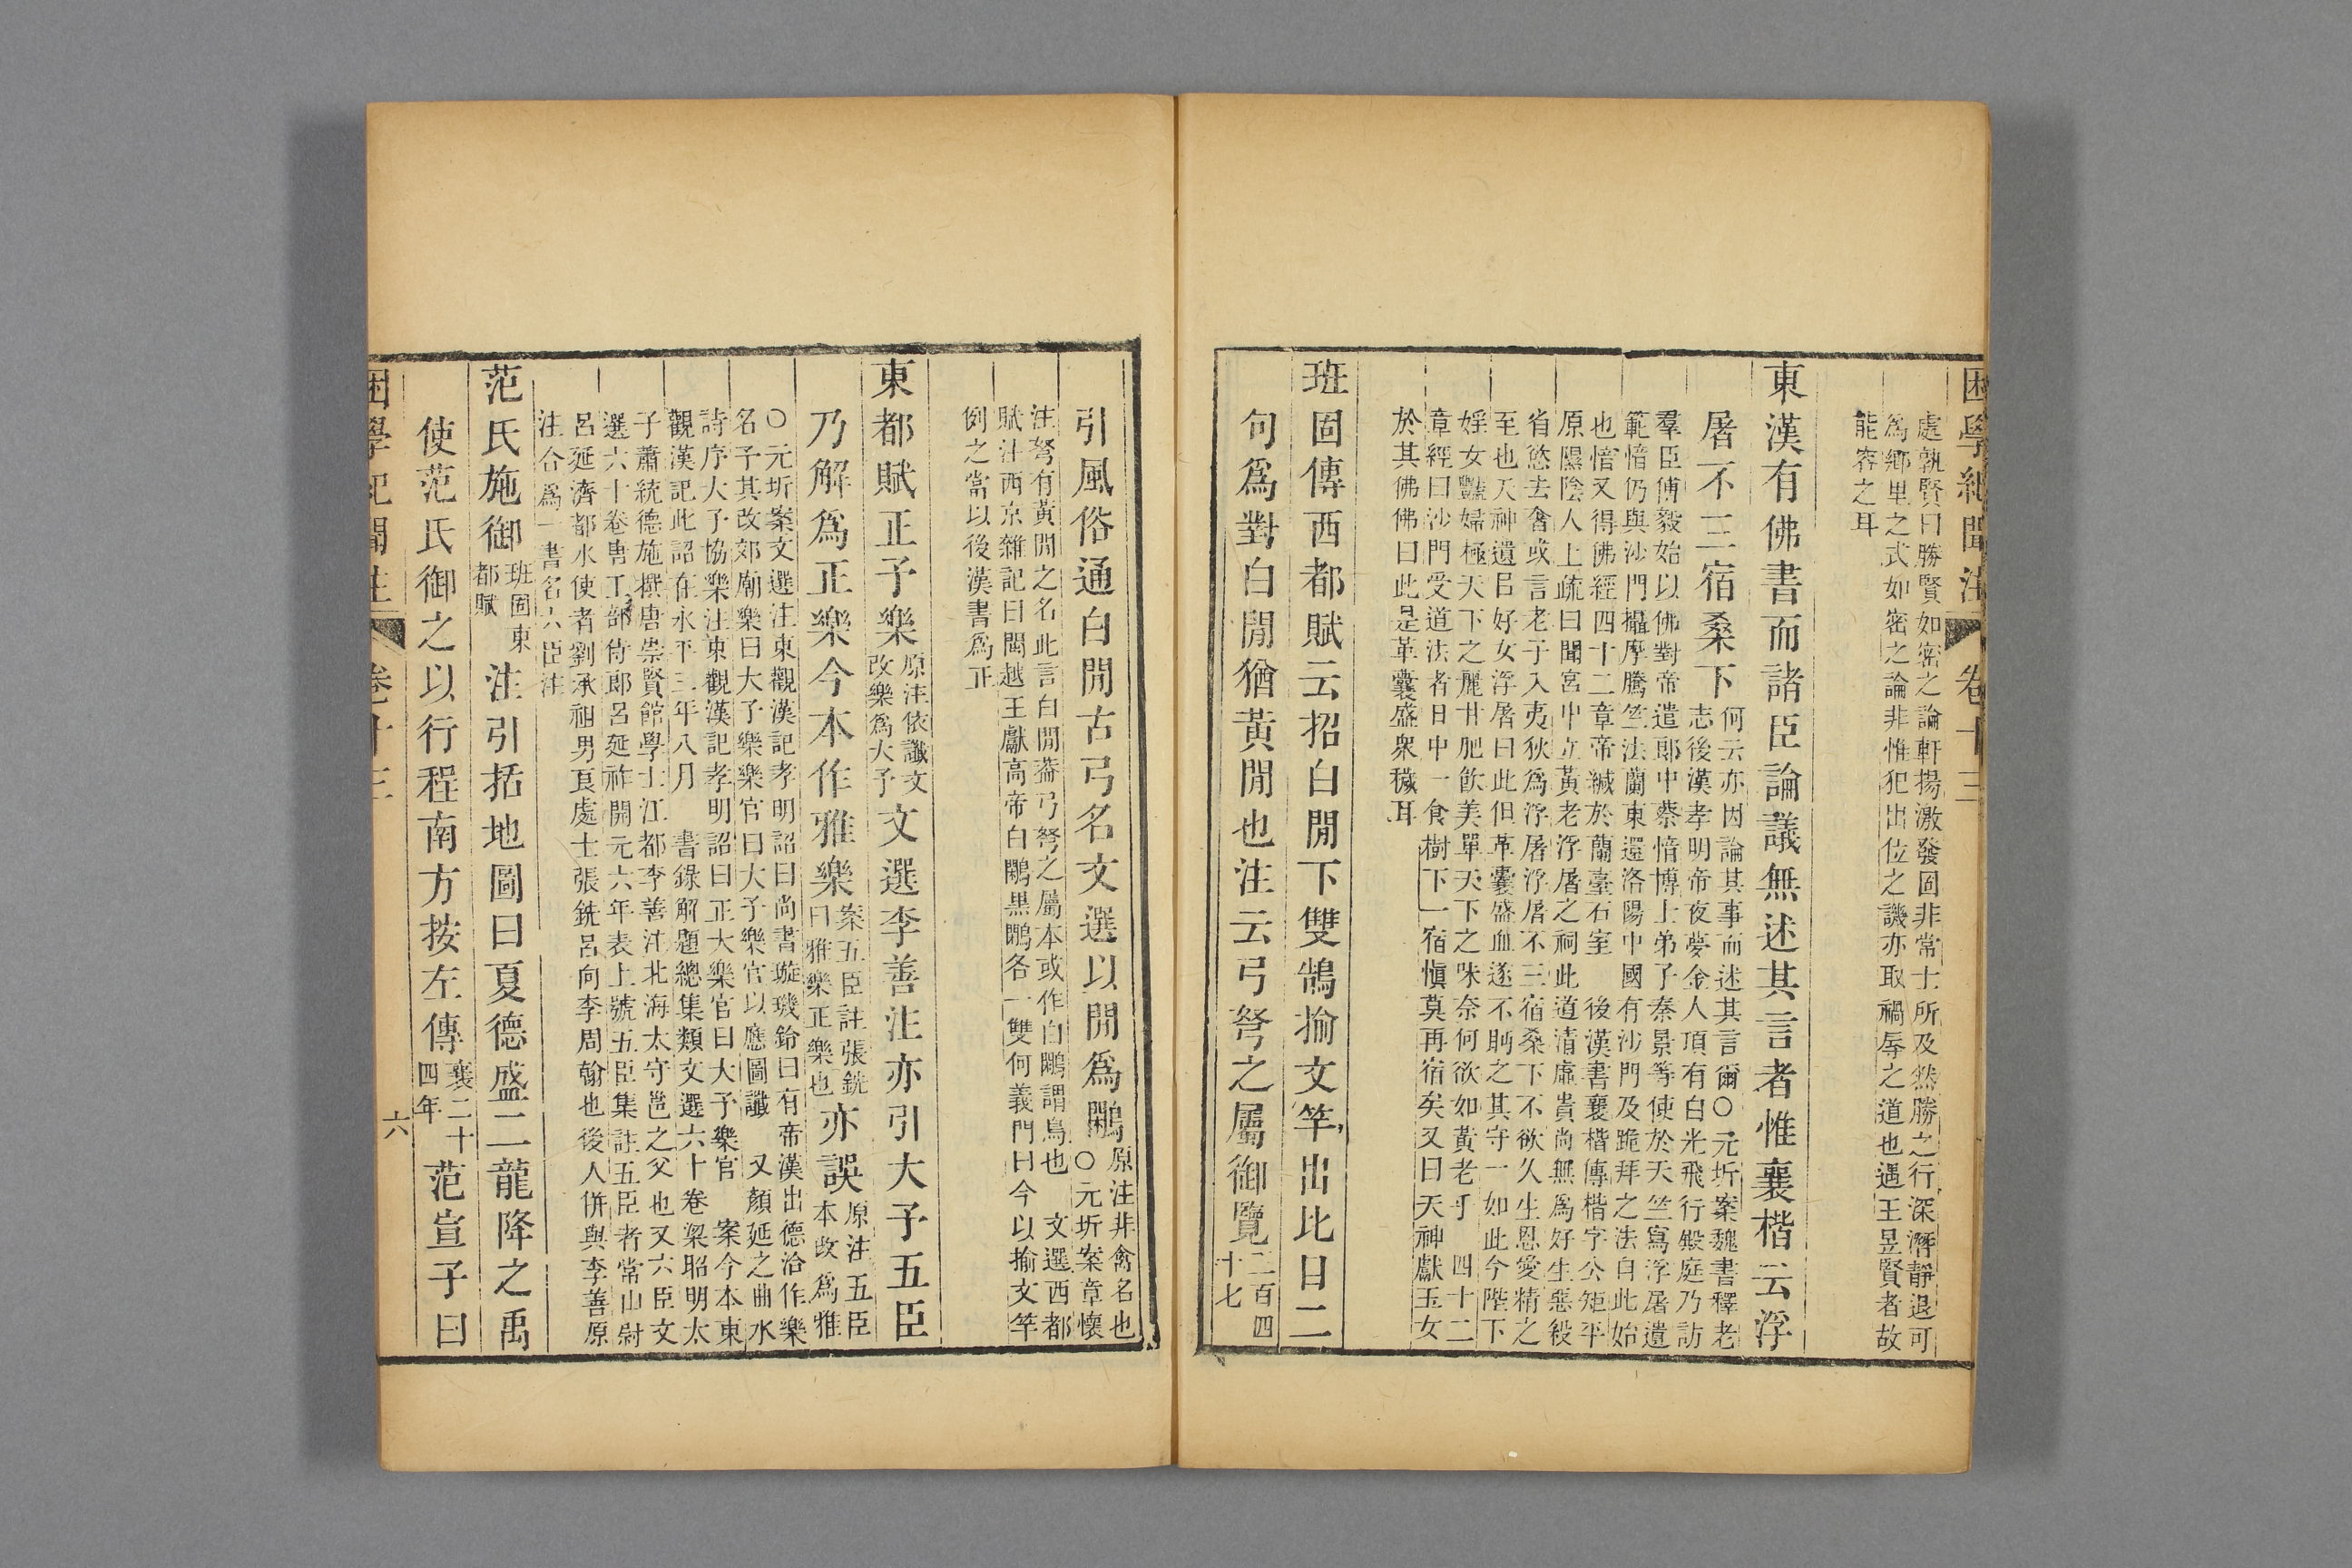 困學紀聞注 卷十三
處孰賢曰勝賢如密之論軒揚激發固非常士所及然勝之行深潛靜退可
為鄉里之式如密之論非惟犯出位之譏亦取禍辱之道也遇王昱賢者故
能容之耳
東漢有佛書而諸臣論議無述其言者惟襄楷云浮
屠不三宿桑下
何云亦因論其事而述其言爾○元圻案魏書釋老
志後漢孝明帝夜夢金人頂有白光飛行殿庭乃訪
羣臣傅毅始以佛對帝遣郎中蔡愔博士弟子秦景等使於天竺寫浮屠遺
範愔仍與沙門攝摩騰竺法蘭東還洛陽中國有沙門及跪拜之法自此始
也愔又得佛經四十二章帝緘於蘭臺石室 後漢書襄楷傳楷字公矩平
原隰陰人上疏曰聞宮中立黃老浮屠之祠此道清虛貴尚無為好生惡殺
省慾去奢或言老子入夷狄為浮屠浮屠不三宿桑下不欲久生恩愛精之
至也天神遺㠯好女浮屠曰此但革囊盛血遂不眄之其守一如此今陛下
婬女豔婦極天下之麗甘肥飲美單天下之味奈何欲如黃老乎 四十二
章經曰沙門受道法者日中一食樹下一宿愼莫再宿矣又曰天神獻玉女
於其佛佛曰此是革囊盛衆穢耳
班固傳西都賦云招白閒下雙鵠揄文竿出比目二
句爲對白閒猶黃閒也注云弓弩之屬御覽
三百四
十七
引風俗通白閒古弓名文選以閒爲鷴
原注非禽名也
○元圻案章懷
注弩有黃閒之名此言白閒蓋弓弩之屬本或作白鷴謂鳥也 文選西都
賦注西京雜記曰閩越王獻高帝白鷴黑鷴各一雙何義門曰今以揄文竿
例之當以後漢書爲正
東都賦正予樂
原注依讖文
改樂爲大予
文選李善注亦引大予五臣
乃解爲正樂今本作雅樂
案五臣註張銑
曰雅樂正樂也
亦誤
原注五臣
本改爲雅
○元圻案文選注東觀漢記孝明詔曰尚書璇璣鈐曰有帝漢出德洽作樂
名予其改郊廟樂曰大予樂樂官曰大予樂官以應圖讖 又顏延之曲水
詩序大予協樂注東觀漢記孝明詔曰正大樂官曰大予樂官 案今本東
觀漢記此詔在永平三年八月 書錄解題總集類文選六十卷梁昭明太
子蕭統德施撰唐崇賢館學士江都李善注北海太守邕之父也又六臣文
選六十卷唐工部侍郎呂延祚開元六年表上號五臣集註五臣者常山尉
呂延濟都水使者劉承祖男良處士張銑呂向李周翰也後人併與李善原
注合爲一書名六臣注
范氏施御
班固東
都賦
注引括地圖曰夏德盛二龍降之禹
使范氏御之以行程南方按左傳
襄二十
四年
范宣子曰
困學紀聞注 卷十三 六